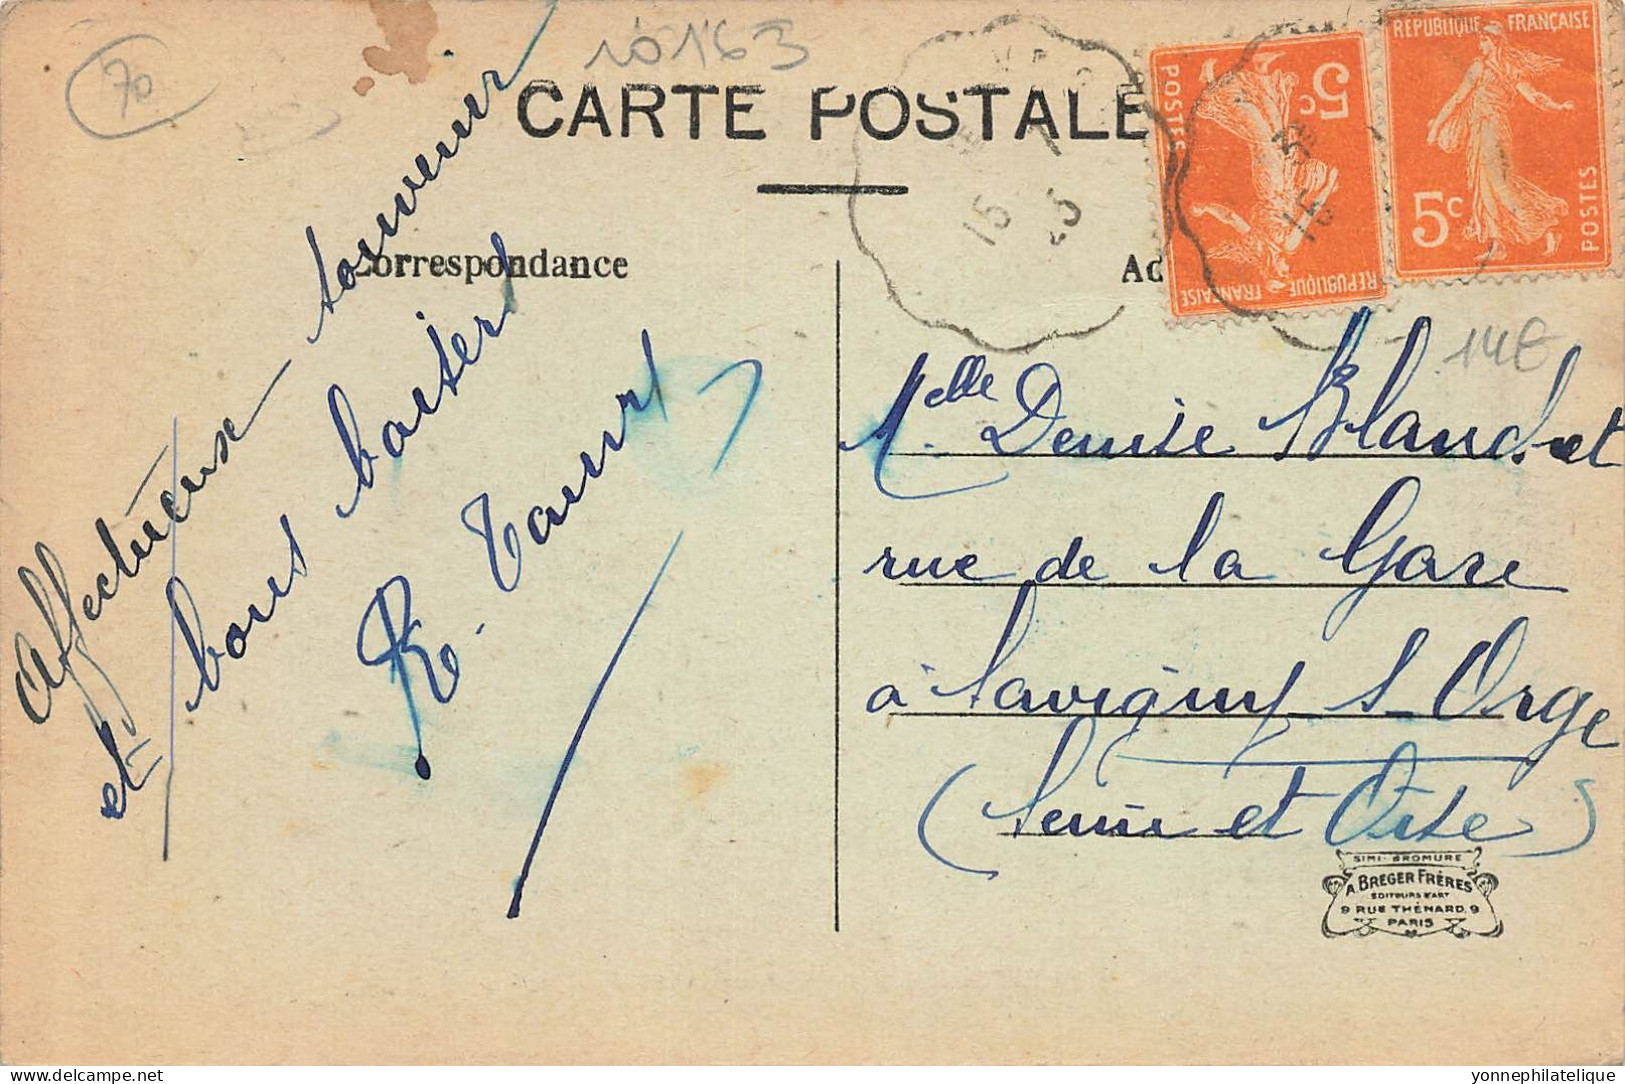 70
10163
CARTE POSTALE
RÉPUBLIQUE FRANÇAISE
5c
POSTES
RÉPUBLIQUE FRANÇAISE
5c
POSTES
15
Correspondance
Ad
14€
Affectueux souvenir
et bons baisers
Melle Denise Blandet
rue de la Gare
à Savigny s Orge
(Seine et Oise)
SIMI-BROMURE
A. BREGER FRÈRES
EDITEURS D'ART
9 RUE THÉNARD, 9
PARIS
yonnephilatelie